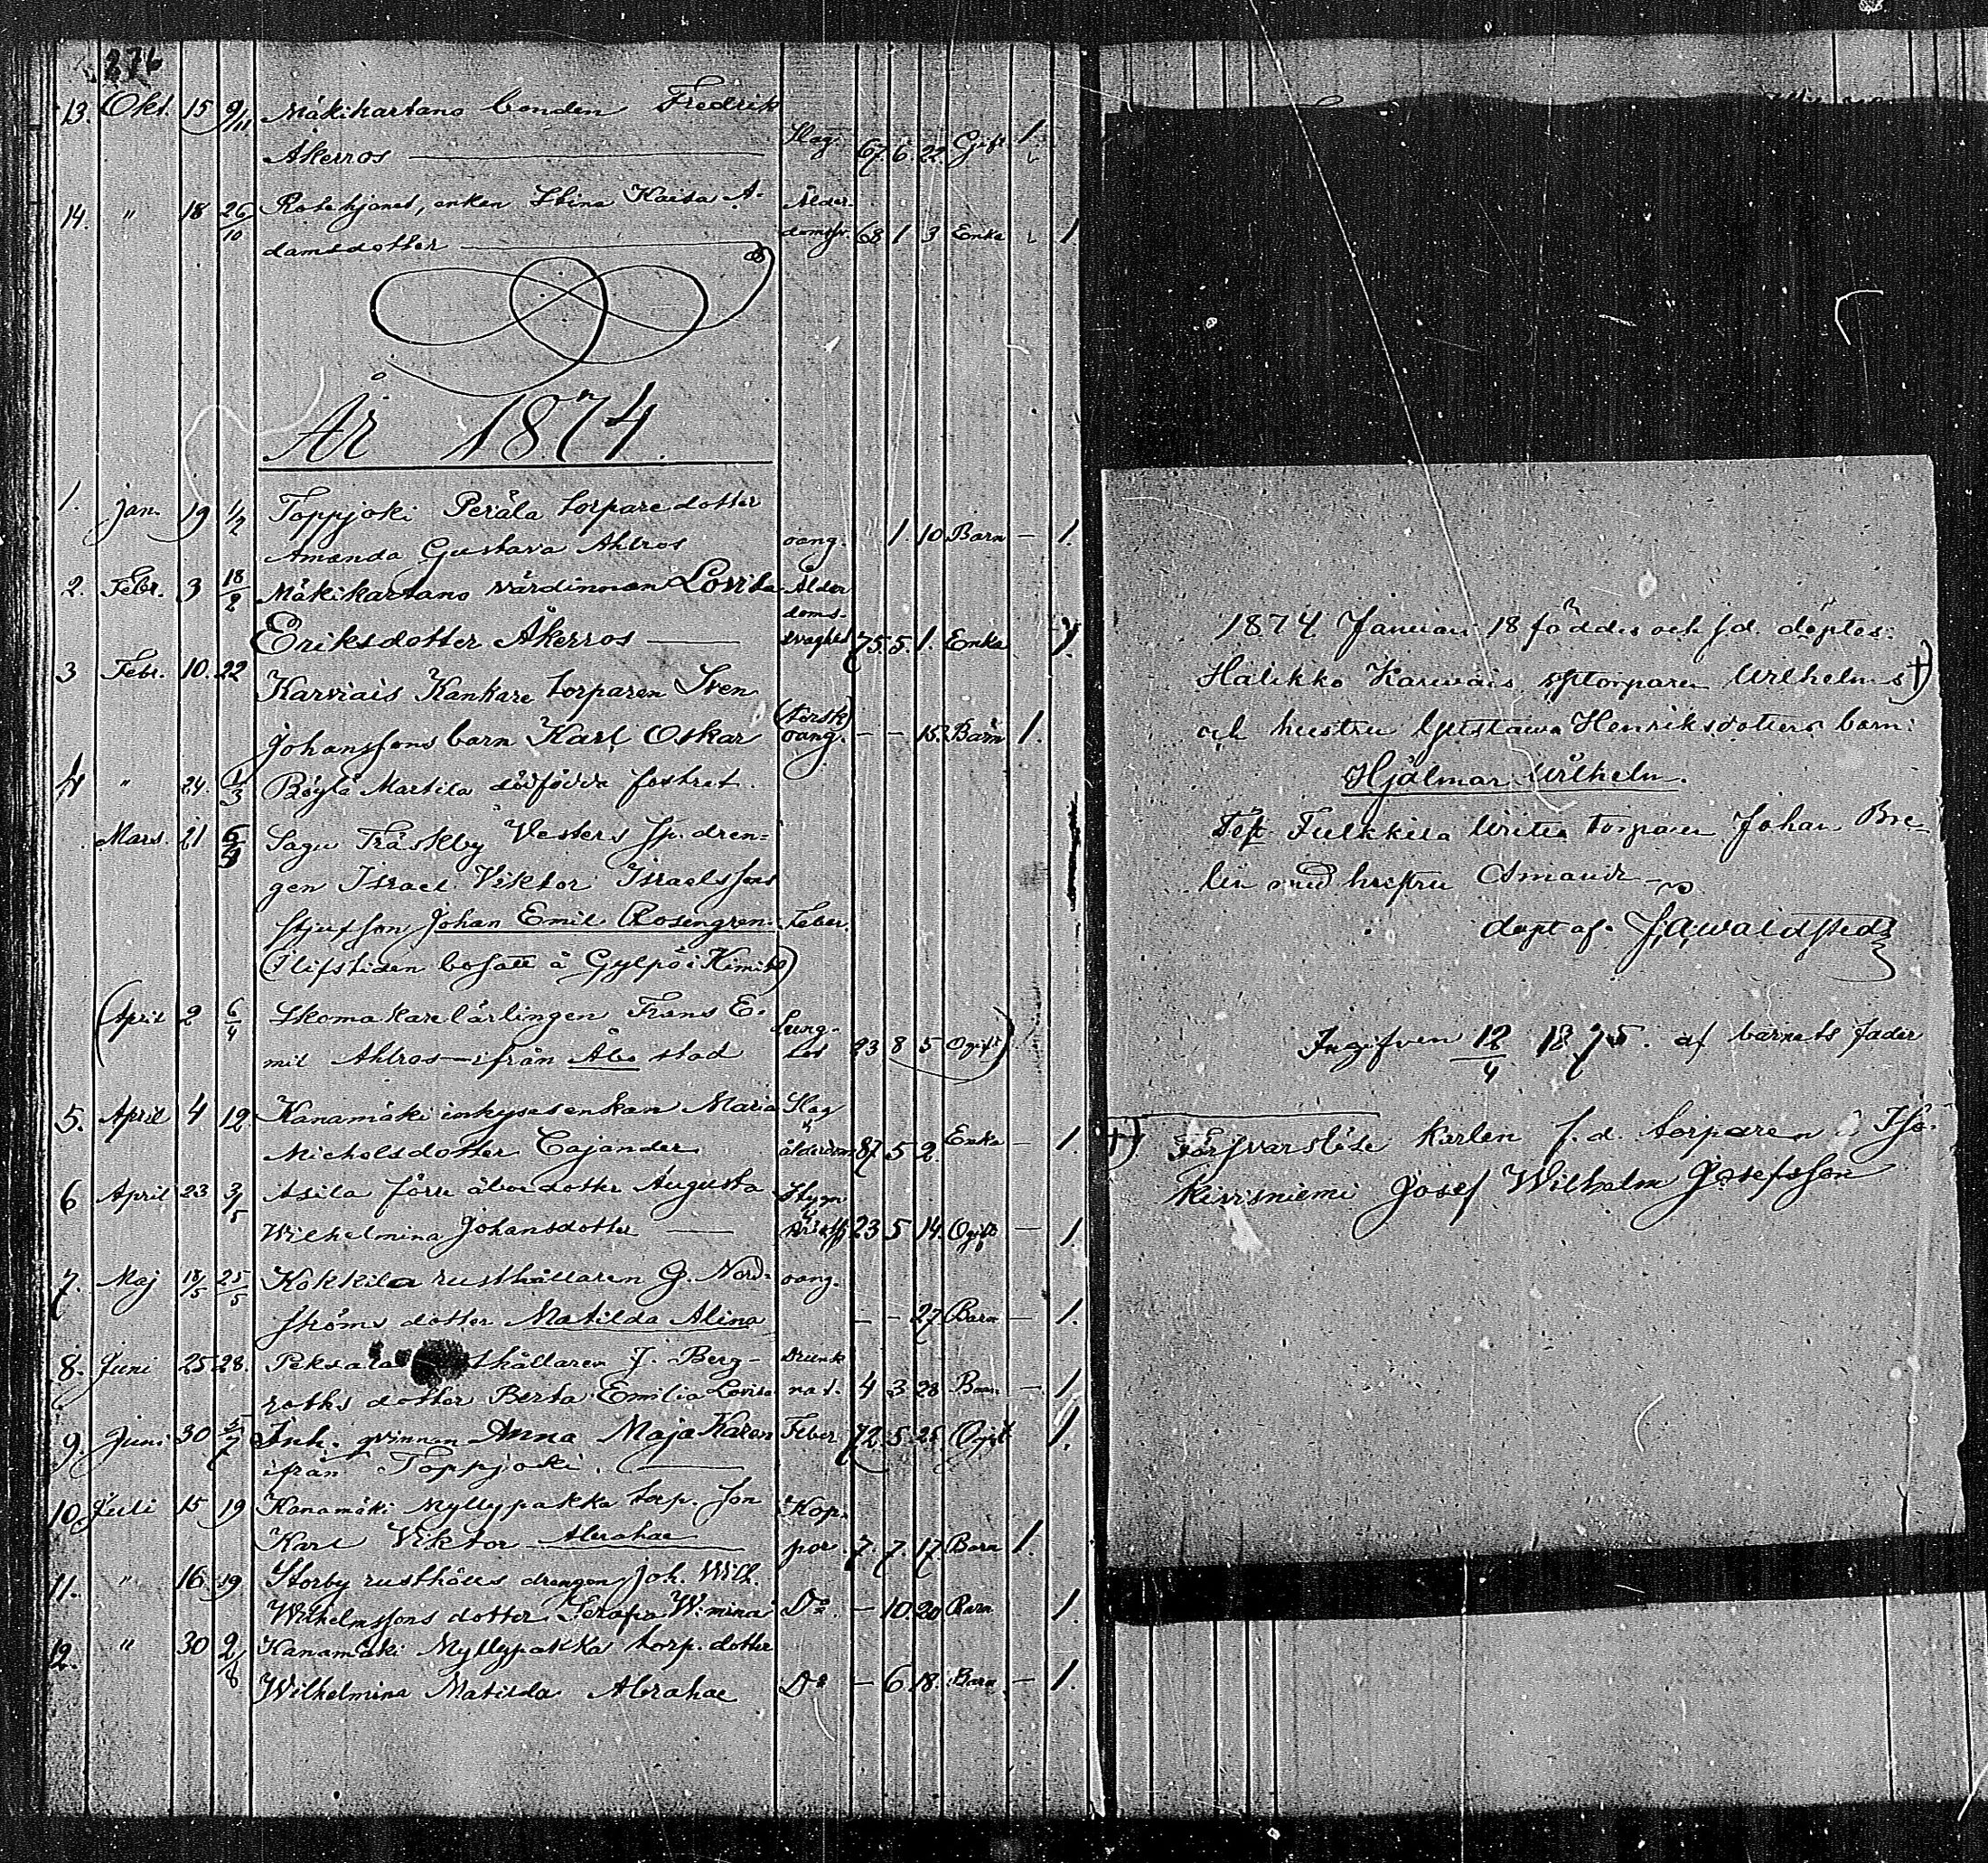 276
13. Okt. 15 9/11 Mäkikartano bonden Fredrik
Åkerros Slag. 67. 6. 22. Gift 1.
14. " 18 26/10 Rotehjonet, enkan Stina Kaisa A-
damsdotter Ålder-
domsv. 68 1 3 Enka 1
År 1874.
1. Jan. 19 1/2 Toppjoki Peräla torparedotter
Amanda Gustava Ahlros oang. " 1. 10 Barn — 1.
2. Febr. 3 18/2 Mäkikartano värdinnan Lovisa
Eriksdotter Åkerros Ålder
doms-
svaghet 75. 5. 1. Enka 1.
3 Febr. 10. 22 Karviais Kankare torparen Sven
Johanssons barn Karl Oskar (torsk)
oang. — — 15. Barn 1.
4 " 24. 1/3 Böylä Martila dödfödda fostret.
Mars. 21 6/4 Sagu Träskby Vesters sp. drän-
gen Israel Viktor Israelssons
stjufson Johan Emil Rosengren. Feber.
(I lifstiden bosatt å Gylpö i Kimito)
(April 2 6/4 Skomakarelärlingen Frans E-
mil Ahlros ifrån Åbo stad Lung-
sot 23 8 5 Ogift)
5. April 4 12 Kanamäki inhysesenkan Maria
Michelsdotter Cajander Slag
ålderdom 87. 5 2. Enka — 1.
6 April 23 3/5 Asila förre åboedotter Augusta
Wilhelmina Johansdotter Stygn
23 5 14. Ogift — 1.
7. Maj 18/5 25/5 Kokkila rusthållaren G. Nord-
ströms dotter Matilda Alina oang.
— — 27. Barn — 1.
8. Juni 25 28. Peksala thållaren J. Berg-
roths dotter Berta Emilia Lovisa Drunk
nat. 4 3 28 Barn — 1
9. Juni 30 5/7 Inh. qvinnan Anna Maja Karen
ifrån Toppjoki. Feber 72. 5. 25. Ogift 1.
10. Juli 15 19 Kanamäki Myllypakka torp. son
Karl Viktor Abrahae Kop-
por. 7. 7. 17. Barn 1.
11. " 16. 19 Storby rusthålls drängen Joh. Wilh.
Wilhelmssons dotter Serafia W:mina Do. — 10. 20 Barn 1.
12. " 30 2/8 Kanamäki Myllypakka torp. dotter
Wilhelmina Matilda Abrahae Do — 6. 18. Barn — 1.
1874 Januari 18 föddes och s.d. döptes:
Halikko Karviais torparen Wilhelms †)
och hustru Gustava Henriksdotters barn:
Hjalmar Wilhelm.
Test. Fulkkila torparen Johan Bre-
lin med hustru Amanda
döpt af. J. A. Waldstedt
Ingifven 12/4 1875. af barnets fader
†) Försvarslöse karlen f.d. torparen i Iso-
kivisniemi Josef Wilhelm Josefsson